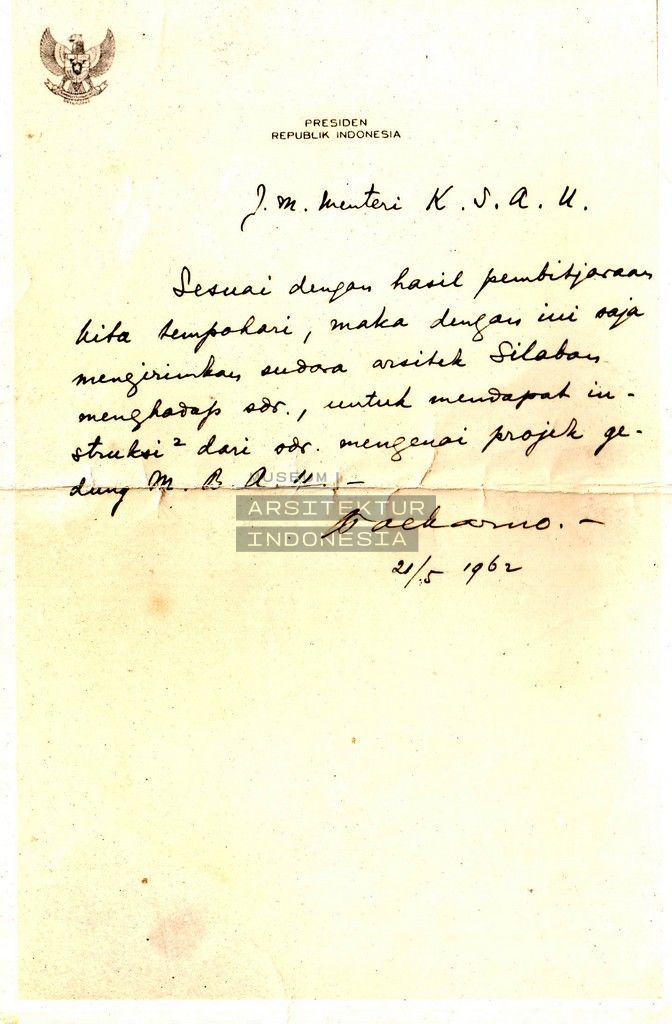 PRESIDEN
REPUBLIK INDONESIA
J. M. Menteri K. S. A. U.
Sesuai dengan hasil pembitjaraan
kita tempohari, maka dengan ini saja
mengirimkan sudara arsitek Silaban
menghadap sdr., untuk mendapat in-
struksi² dari sdr. mengenai projek ge-
dung M. B. A. U. –
MUSEUM
ARSITEKTUR
INDONESIA
Soekarno. –
21/5 1962